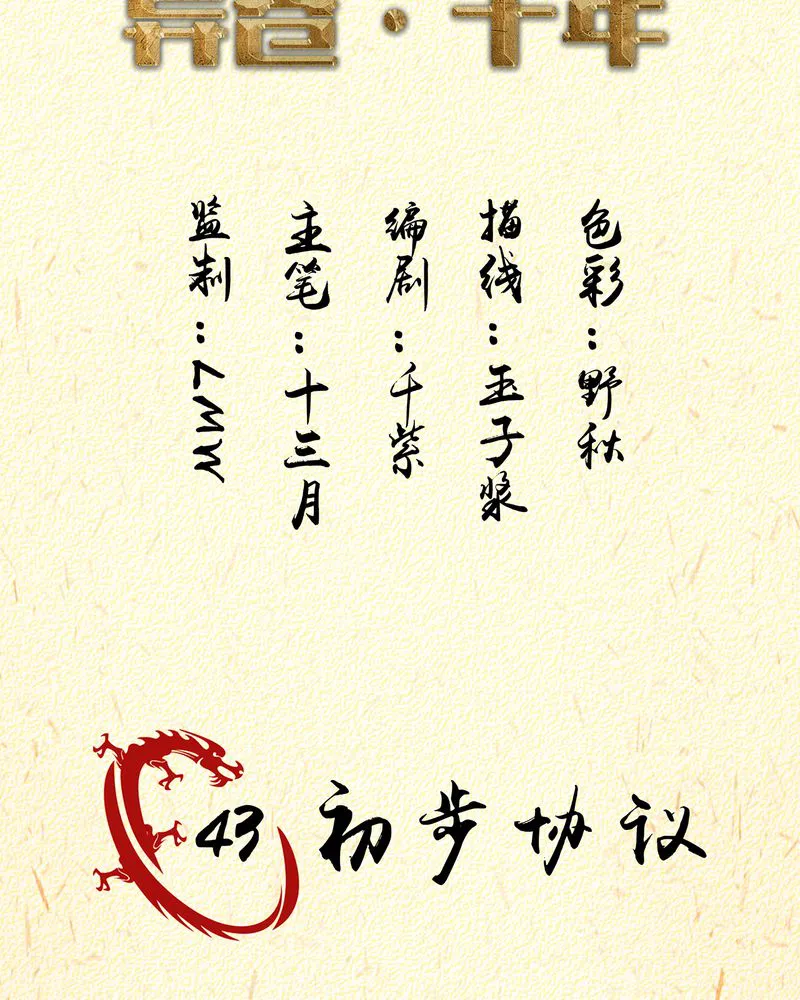 ·千年
色彩：野秋
描线：玉子浆
编剧：千紫
主笔：十三月
监制：ZMW
43
初步协议